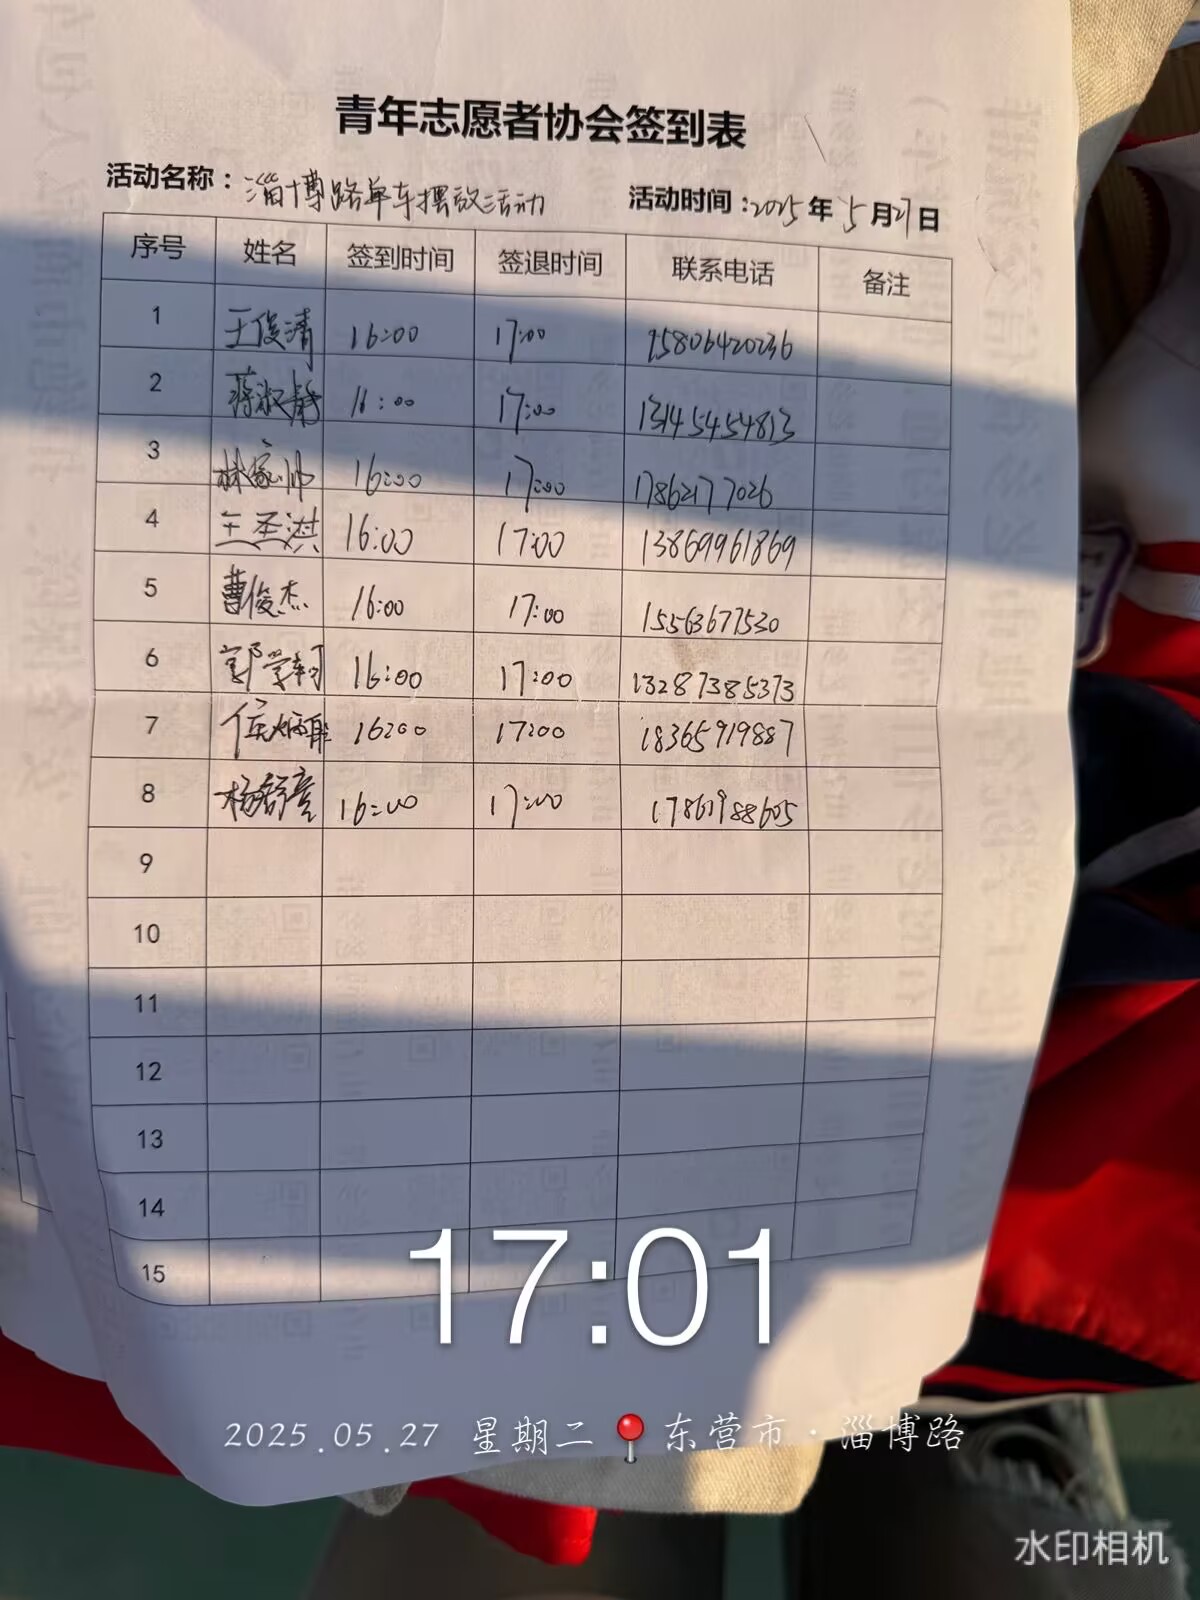 青年志愿者协会签到表
活动名称：淄博路单车摆放活动 活动时间：2025年5月27日
序号 姓名 签到时间 签退时间 联系电话 备注
1 王俊清 16:00 17:00 15806420236
2 蒋淑静 16:00 17:00 13145454813
3 林家帅 16:00 17:00 17862177026
4 王圣淇 16:00 17:00 13869961869
5 曹俊杰 16:00 17:00 15563677530
6 郭学轲 16:00 17:00 13287385373
7 侯炳聪 16:00 17:00 18365919887
8 杨舒亮 16:00 17:00 17861988605
9
10
11
12
13
14
15
17:01
2025.05.27 星期二 东营市·淄博路
水印相机